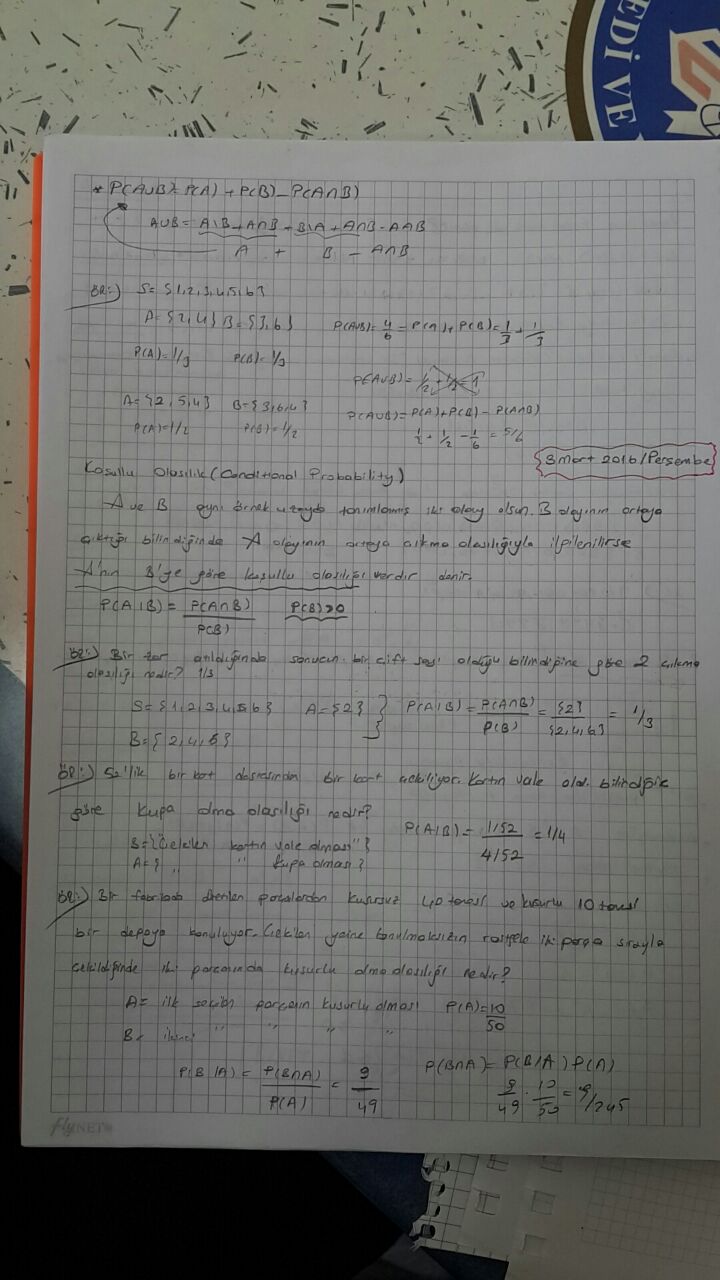 EDİ VE
* P(A∪B)= P(A) + P(B) - P(A∩B)
A∪B = A\B + A∩B + B\A + A∩B - A∩B
A + B - A∩B
ÖR:) S= {1,2,3,4,5,6}
A= {2,4} B= {3,6} P(A∪B)= 4/6 = P(A)+P(B)= 1/3 + 1/3
P(A)= 1/3 P(B)= 1/3
P(A∪B)= 1/2 + 1/2 = 1
A= {2,5,4} B= {3,6,4} P(A∪B)= P(A)+P(B) - P(A∩B)
P(A)=1/2 P(B)= 1/2 1/2 + 1/2 - 1/6 = 5/6
3 mart 2016/Perşembe
Koşullu Olasılık (Conditional Probability)
A ve B aynı örnek uzayda tanımlanmış iki olay olsun. B olayının ortaya
çıktığı bilindiğinde A olayının ortaya çıkma olasılığıyla ilgilenilirse
A'nın B'ye göre koşullu olasılığı vardır denir.
P(A|B) = P(A∩B) / P(B) P(B)>0
ÖR:) Bir zar atıldığında sonucun bir çift sayı olduğu bilindiğine göre 2 çıkma
olasılığı nedir? 1/3
S= {1,2,3,4,5,6} A= {2} } P(A|B) = P(A∩B) / P(B) = {2} / {2,4,6} = 1/3
B= {2,4,6}
ÖR:) 52'lik bir kart destesinden bir kart çekiliyor. Kartın vale old. bilindiğine
göre kupa olma olasılığı nedir?
P(A|B) = 1/52 / 4/52 = 1/4
B= {Çekilen kartın vale olması"}
A= { " " kupa olması}
ÖR:) Bir fabrikada üretilen parçalardan kusursuz 40 tanesi ve kusurlu 10 tanesi
bir depoya konuluyor. Çekilen yerine konulmaksızın rastgele iki parça sırayla
çekildiğinde iki parçanında kusurlu olma olasılığı nedir?
A= ilk seçilen parçanın kusurlu olması P(A)= 10/50
B= ikinci " " " "
P(B|A) = P(B∩A) / P(A) = 9/49 P(B∩A)= P(B|A) P(A)
9/49 . 10/50 = 9/245
flyNET